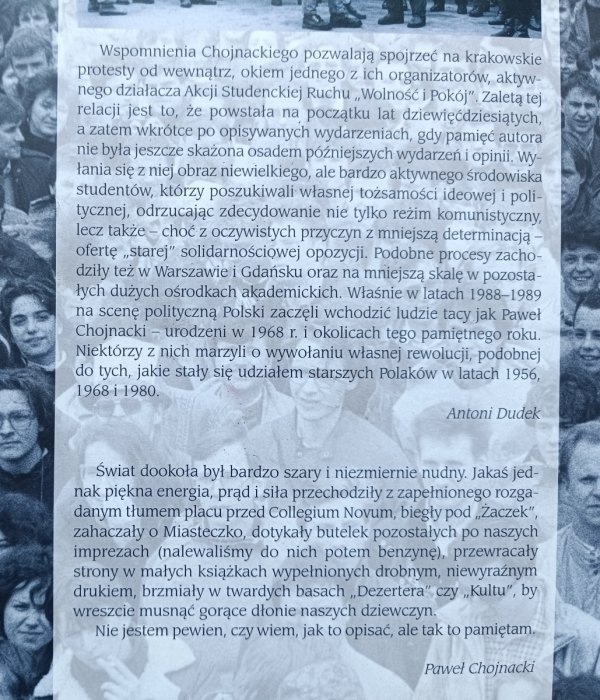 Wspomnienia Chojnackiego pozwalają spojrzeć na krakowskie
protesty od wewnątrz, okiem jednego z ich organizatorów, aktyw-
nego działacza Akcji Studenckiej Ruchu „Wolność i Pokój”. Zaletą tej
relacji jest to, że powstała na początku lat dziewięćdziesiątych,
a zatem wkrótce po opisywanych wydarzeniach, gdy pamięć autora
nie była jeszcze skażona osadem późniejszych wydarzeń i opinii. Wy-
łania się z niej obraz niewielkiego, ale bardzo aktywnego środowiska
studentów, którzy poszukiwali własnej tożsamości ideowej i poli-
tycznej, odrzucając zdecydowanie nie tylko reżim komunistyczny,
lecz także – choć z oczywistych przyczyn z mniejszą determinacją –
ofertę „starej” solidarnościowej opozycji. Podobne procesy zacho-
dziły też w Warszawie i Gdańsku oraz na mniejszą skalę w pozosta-
łych dużych ośrodkach akademickich. Właśnie w latach 1988–1989
na scenę polityczną Polski zaczęli wchodzić ludzie tacy jak Paweł
Chojnacki – urodzeni w 1968 r. i okolicach tego pamiętnego roku.
Niektórzy z nich marzyli o wywołaniu własnej rewolucji, podobnej
do tych, jakie stały się udziałem starszych Polaków w latach 1956,
1968 i 1980.
Antoni Dudek
Świat dookoła był bardzo szary i niezmiernie nudny. Jakaś jed-
nak piękna energia, prąd i siła przechodziły z zapełnionego rozga-
danym tłumem placu przed Collegium Novum, biegły pod „Żaczek”,
zahaczały o Miasteczko, dotykały butelek pozostałych po naszych
imprezach (nalewaliśmy do nich potem benzynę), przewracały
strony w małych książkach wypełnionych drobnym, niewyraźnym
drukiem, brzmiały w twardych basach „Dezertera” czy „Kultu”, by
wreszcie musnąć gorące dłonie naszych dziewczyn.
Nie jestem pewien, czy wiem, jak to opisać, ale tak to pamiętam.
Paweł Chojnacki